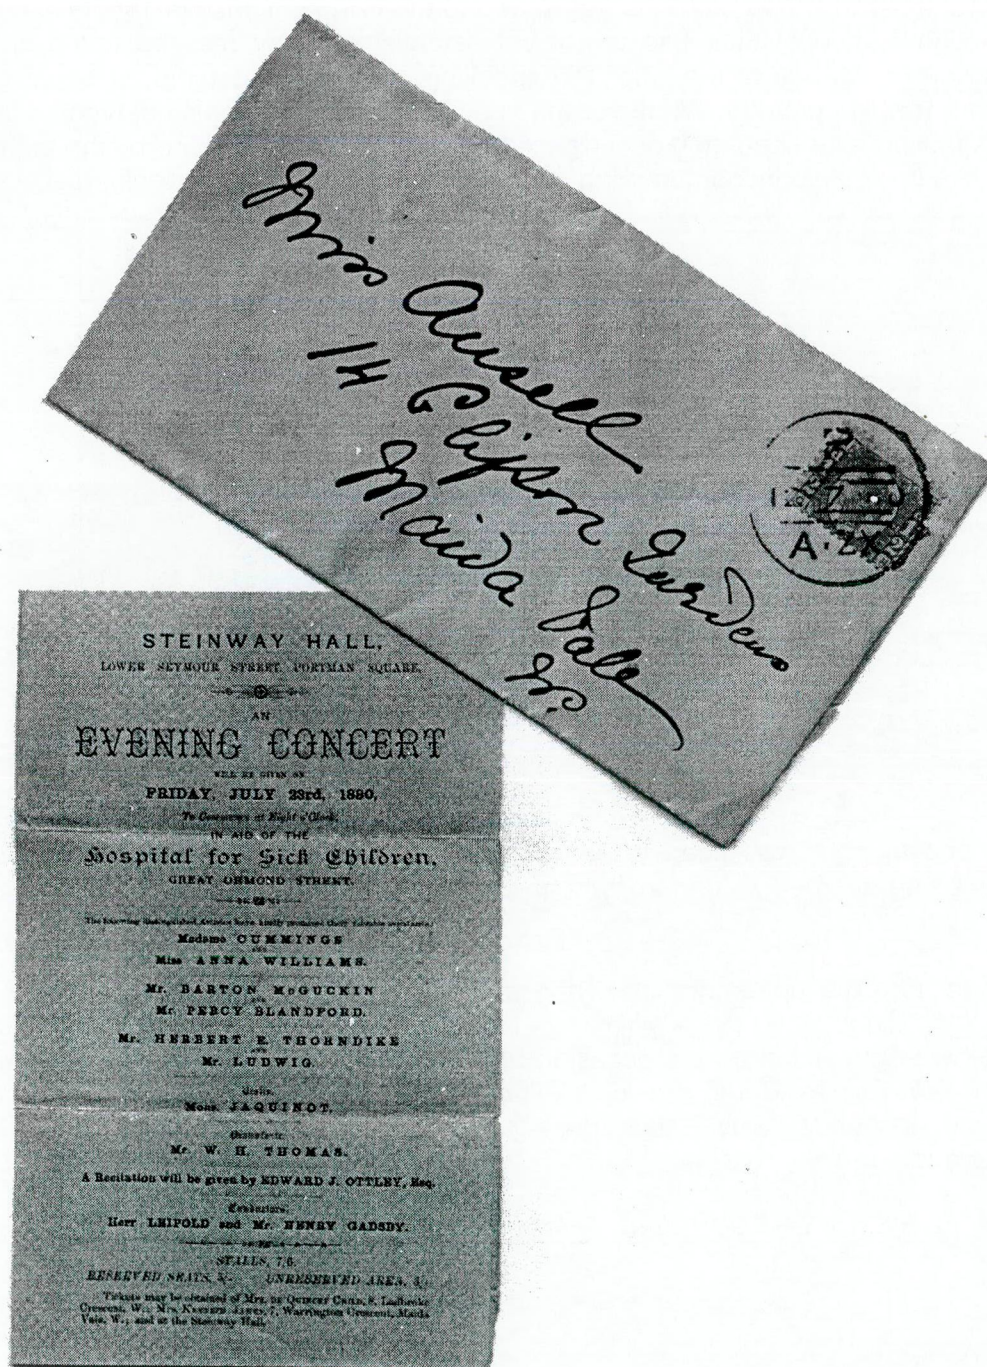 Miss Ansell
14 Clifton Gardens
Maida Vale
W.
A·ZX·2
STEINWAY HALL,
LOWER SEYMOUR STREET, PORTMAN SQUARE.
AN
EVENING CONCERT
WILL BE GIVEN ON
FRIDAY, JULY 23rd, 1880,
To Commence at Eight o'Clock,
IN AID OF THE
Hospital for Sick Children,
GREAT ORMOND STREET.
The following distinguished Artistes have kindly promised their valuable assistance:
Madame CUMMINGS
AND
Miss ANNA WILLIAMS.
Mr. BARTON McGUCKIN
AND
Mr. PERCY BLANDFORD.
Mr. HERBERT E. THORNDIKE
AND
Mr. LUDWIG.
Mons. JAQUINOT.
Mr. W. H. THOMAS.
A Recitation will be given by EDWARD J. OTTLEY, Esq.
Conductors,
Herr LEIPOLD and Mr. HENRY GADSBY.
STALLS, 7/6.
RESERVED SEATS, 5/-. UNRESERVED AREA, 3/-.
Tickets may be obtained of Mrs. DE QUINCEY CHILD, 8, Ladbroke
Crescent, W.; Mrs. JAMES, 7, Warrington Crescent, Maida
Vale, W.; and at the Steinway Hall.